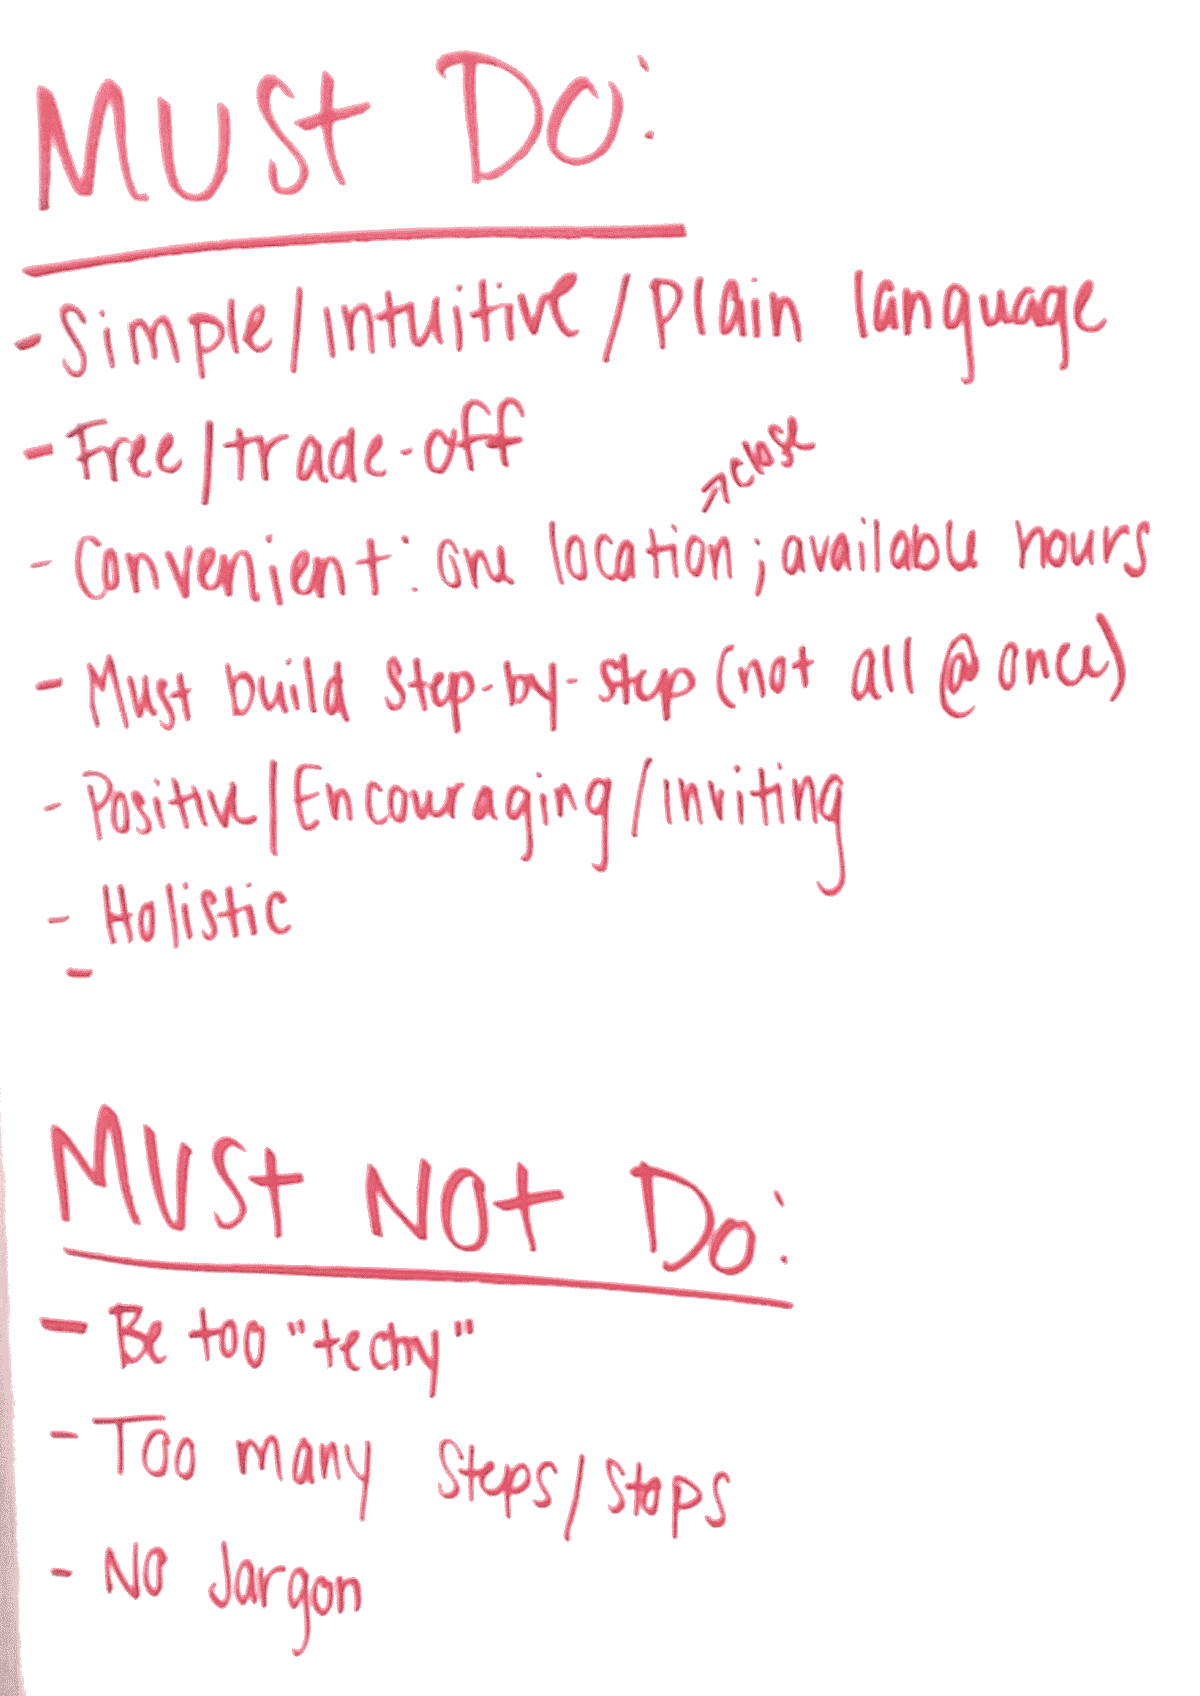 MUST DO:
- Simple/intuitive/plain language
- Free/trade-off
↗close
- Convenient: one location; available hours
- Must build step-by-step (not all @ once)
- Positive/Encouraging/inviting
- Holistic
-
MUST NOT DO:
- Be too "techy"
- Too many steps/stops
- No Jargon